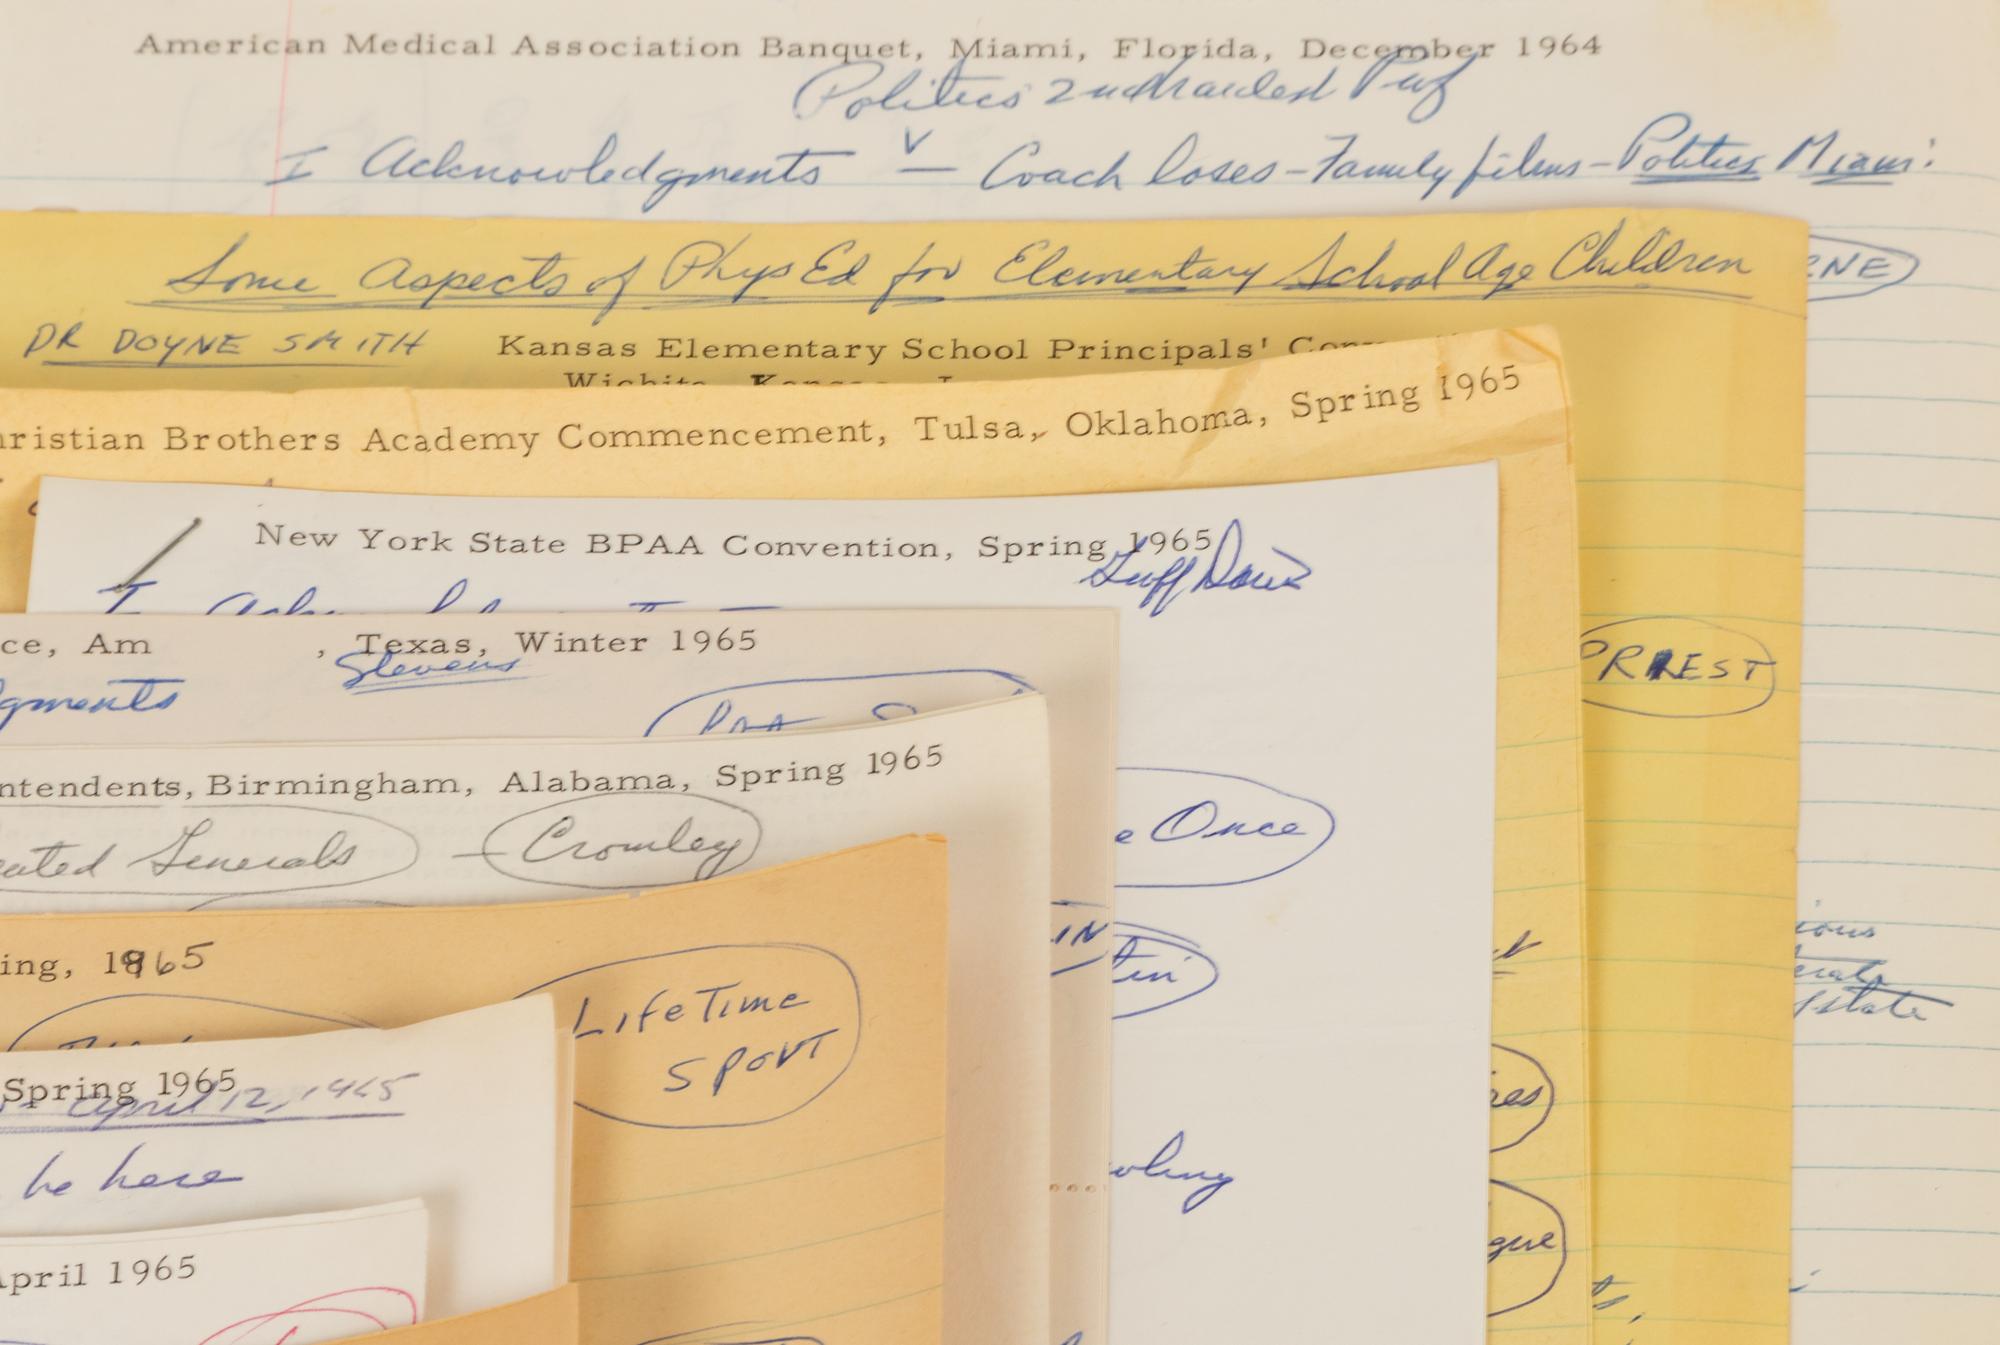 American Medical Association Banquet, Miami, Florida, December 1964
Politics
I Acknowledgments v — Coach loses - Family films - Politics Miami
Some Aspects of Phys Ed for Elementary School Age Children
DR DOYNE SMITH Kansas Elementary School Principals'
Wichita, Kansas,
ristian Brothers Academy Commencement, Tulsa, Oklahoma, Spring 1965
New York State BPAA Convention, Spring 1965
I
PRIEST
ce, Am , Texas, Winter 1965
Stevens
gments
ntendents, Birmingham, Alabama, Spring 1965
Generals — Crowley
e Once
IN
tin
ing, 1965
LifeTime
Sport
Spring 1965
April 12, 1965
be here
April 1965
state